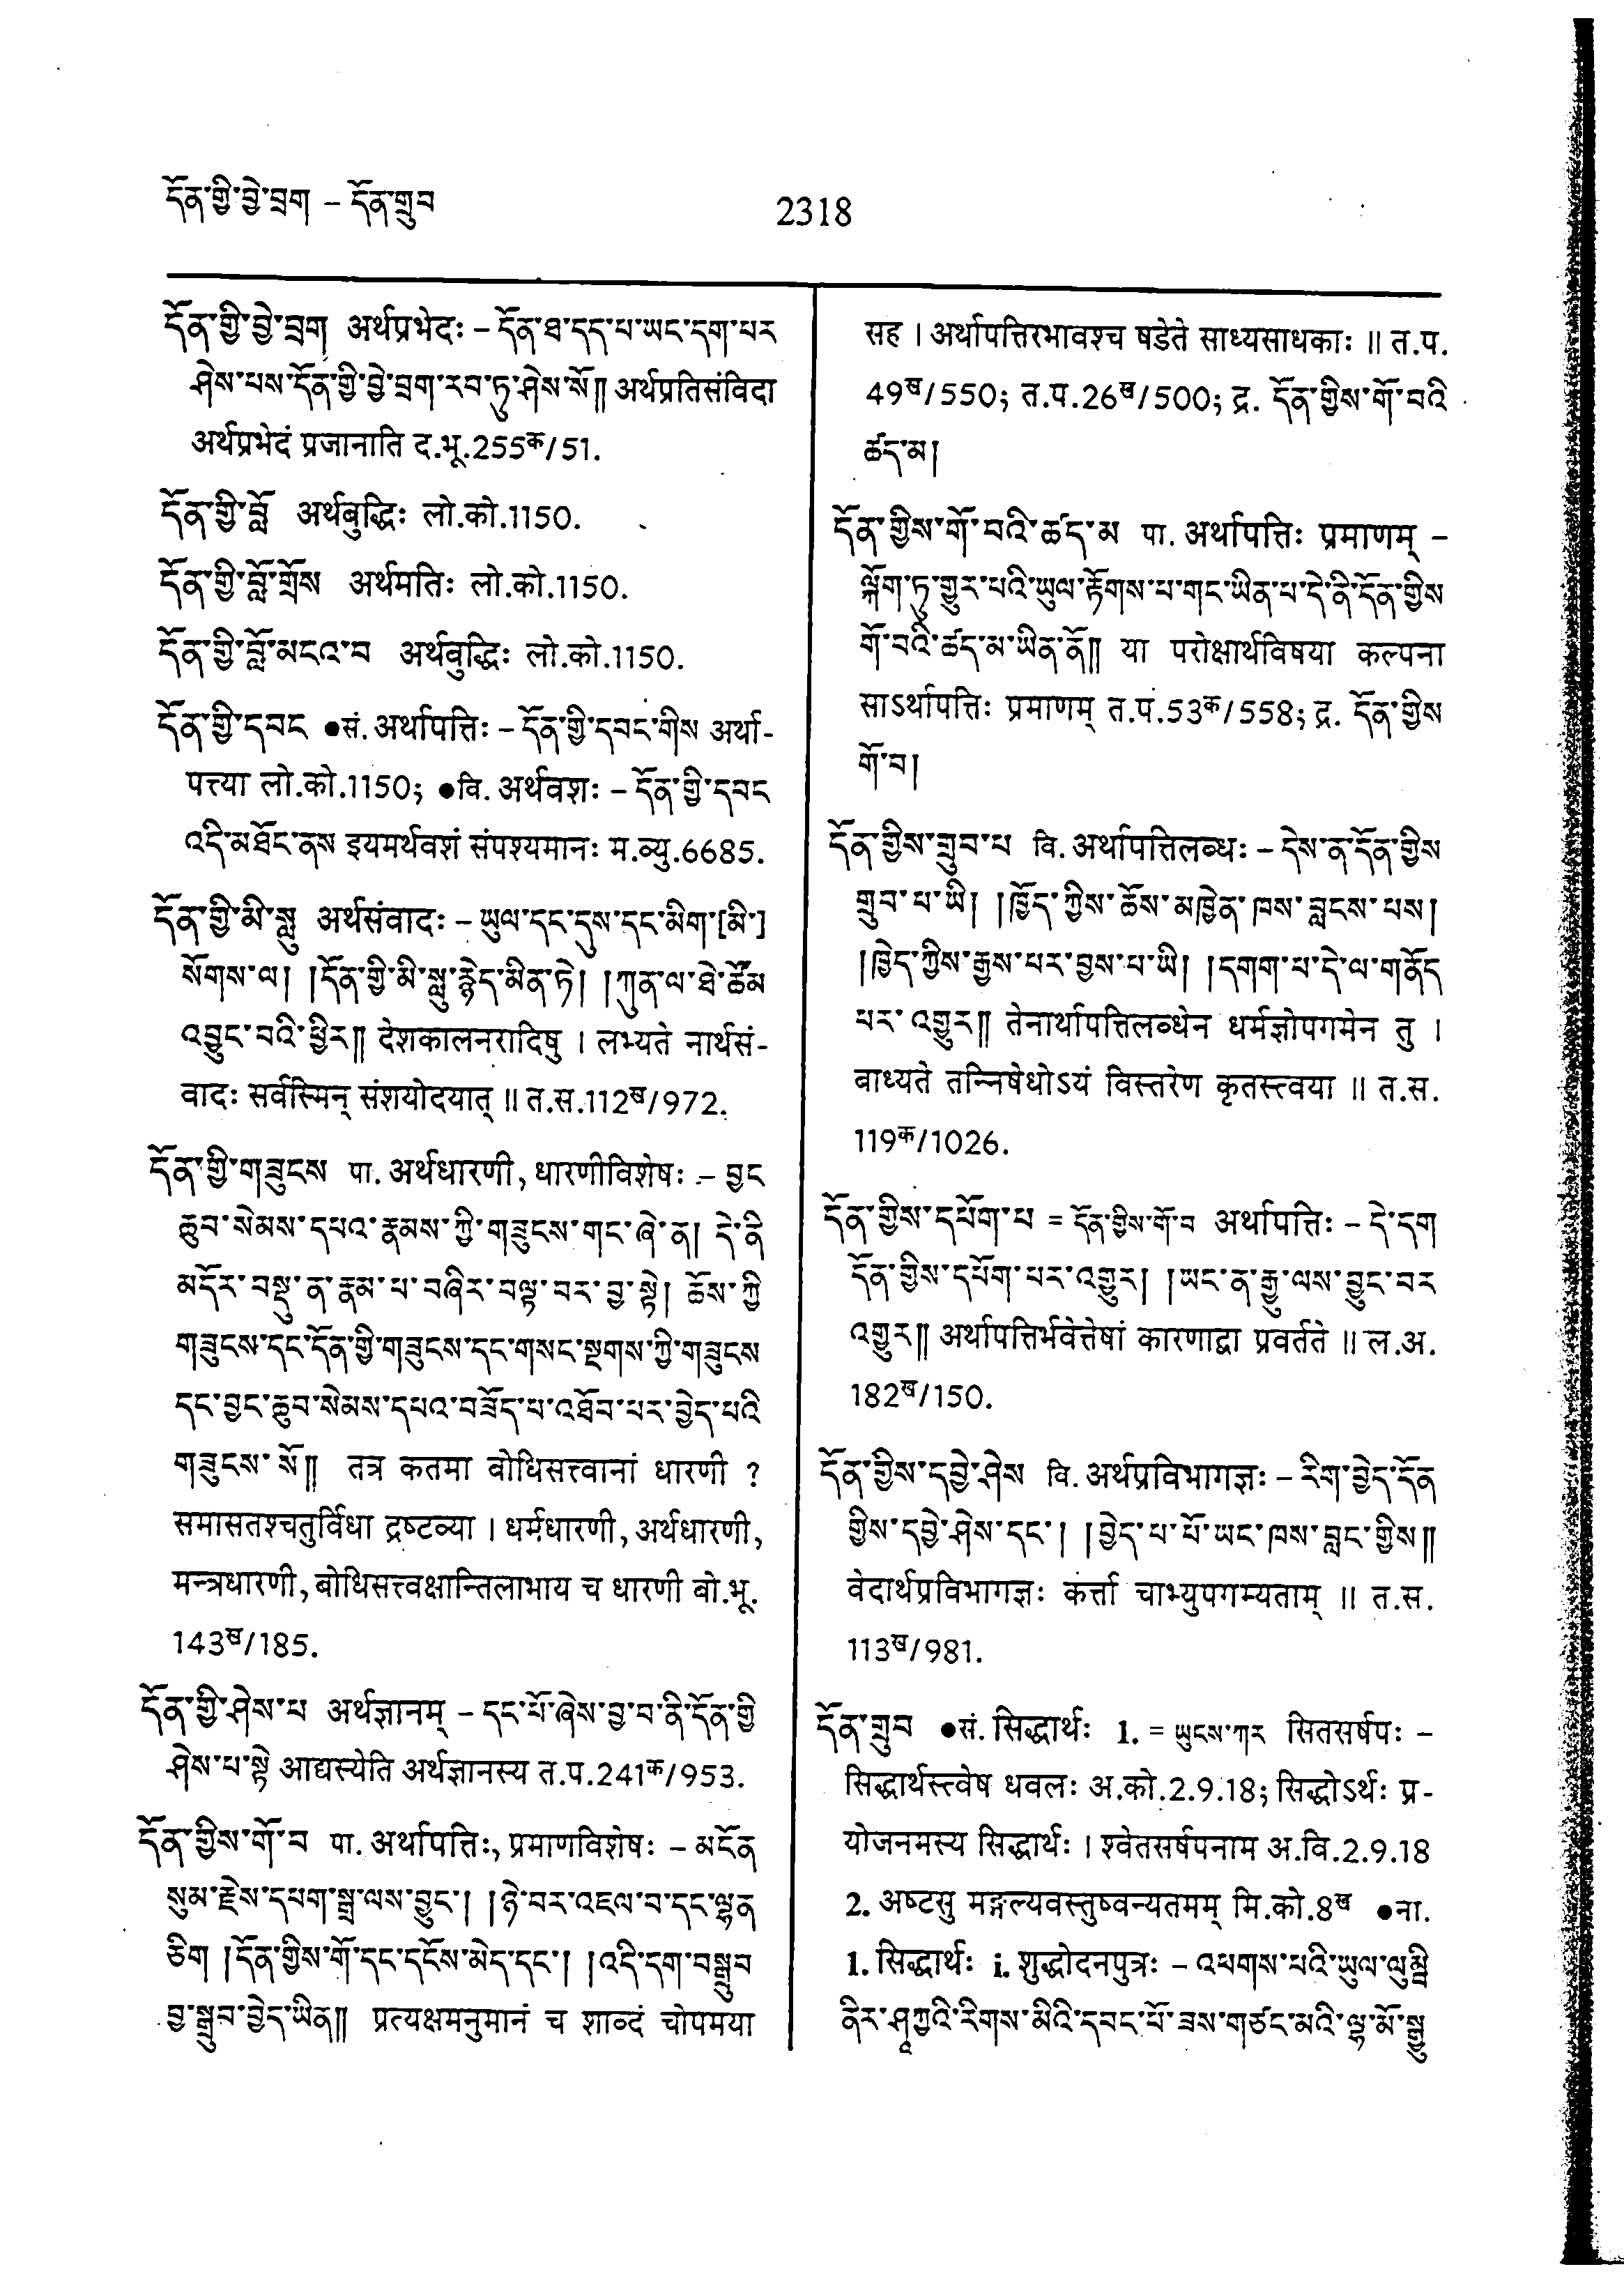 དོན་གྱི་བྱེ་བྲག – དོན་གྲུབ
2318
དོན་གྱི་བྱེ་བྲག अर्थप्रभेदः – དོན་ཐ་དད་པ་ཡང་དག་པར
ཤེས་པས་དོན་གྱི་བྱེ་བྲག་རབ་ཏུ་ཤེས་སོ༎ अर्थप्रतिसंविदा
अर्थप्रभेदं प्रजानाति द.भू.255क/51.
དོན་གྱི་བློ अर्थबुद्धिः लो.को.1150.
དོན་གྱི་བློ་གྲོས अर्थमतिः लो.को.1150.
དོན་གྱི་བློ་མངའ་བ अर्थबुद्धिः लो.को.1150.
དོན་གྱི་དབང ●सं. अर्थापत्तिः – དོན་གྱི་དབང་གིས अर्था-
पत्त्या लो.को.1150; ●वि. अर्थवशः – དོན་གྱི་དབང
འདི་མཐོང་ནས इयमर्थवशं संपश्यमानः म.व्यु.6685.
དོན་གྱི་མི་སླུ अर्थसंवादः – ཡུལ་དང་དུས་དང་མིག་[མི་]
སོགས་ལ། །དོན་གྱི་མི་སླུ་རྙེད་མིན་ཏེ། །ཀུན་ལ་ཐེ་ཚོམ
འབྱུང་བའི་ཕྱིར༎ देशकालनरादिषु । लभ्यते नार्थसं-
वादः सर्वस्मिन् संशयोदयात् ॥ त.स.112ख/972.
དོན་གྱི་གཟུངས पा. अर्थधारणी, धारणीविशेषः – བྱང
ཆུབ་སེམས་དཔའ་རྣམས་ཀྱི་གཟུངས་གང་ཞེ་ན། དེ་ནི
མདོར་བསྡུ་ན་རྣམ་པ་བཞིར་བལྟ་བར་བྱ་སྟེ། ཆོས་ཀྱི
གཟུངས་དང་དོན་གྱི་གཟུངས་དང་གསང་སྔགས་ཀྱི་གཟུངས
དང་བྱང་ཆུབ་སེམས་དཔའ་བཟོད་པ་འཐོབ་པར་བྱེད་པའི
གཟུངས་སོ༎ तत्र कतमा बोधिसत्त्वानां धारणी ?
समासतश्चतुर्विधा द्रष्टव्या । धर्मधारणी, अर्थधारणी,
मन्त्रधारणी, बोधिसत्त्वक्षान्तिलाभाय च धारणी बो.भू.
143ख/185.
དོན་གྱི་ཤེས་པ अर्थज्ञानम् – དང་པོ་ཞེས་བྱ་བ་ནི་དོན་གྱི
ཤེས་པ་སྟེ आद्यस्येति अर्थज्ञानस्य त.प.241क/953.
དོན་གྱིས་གོ་བ पा. अर्थापत्तिः, प्रमाणविशेषः – མངོན
སུམ་རྗེས་དཔག་སྒྲ་ལས་བྱུང་། །ཉེ་བར་འཇལ་བ་དང་ལྷན
ཅིག །དོན་གྱིས་གོ་དང་དངོས་མེད་དང་། །འདི་དག་བསྒྲུབ
བྱ་སྒྲུབ་བྱེད་ཡིན༎ प्रत्यक्षमनुमानं च शाब्दं चोपमया
सह । अर्थापत्तिरभावश्च षडेते साध्यसाधकाः ॥ त.प.
49ख/550; त.प.26ख/500; द्र. དོན་གྱིས་གོ་བའི
ཚད་མ།
དོན་གྱིས་གོ་བའི་ཚད་མ पा. अर्थापत्तिः प्रमाणम् –
ལྐོག་ཏུ་གྱུར་པའི་ཡུལ་རྟོགས་པ་གང་ཡིན་པ་དེ་ནི་དོན་གྱིས
གོ་བའི་ཚད་མ་ཡིན་ནོ༎ या परोक्षार्थविषया कल्पना
साऽर्थापत्तिः प्रमाणम् त.प.53क/558; द्र. དོན་གྱིས
གོ་བ།
དོན་གྱིས་གྲུབ་པ वि. अर्थापत्तिलब्धः – དེས་ན་དོན་གྱིས
གྲུབ་པ་ཡི། །ཁྱོད་ཀྱིས་ཆོས་མཁྱེན་ཁས་བླངས་པས།
།ཁྱེད་ཀྱིས་རྒྱས་པར་བྱས་པ་ཡི། །དགག་པ་དེ་ལ་གནོད
པར་འགྱུར༎ तेनार्थापत्तिलब्धेन धर्मज्ञोपगमेन तु ।
बाध्यते तन्निषेधोऽयं विस्तरेण कृतस्त्वया ॥ त.स.
119क/1026.
དོན་གྱིས་དཔོག་པ = དོན་གྱིས་གོ་བ अर्थापत्तिः – དེ་དག
དོན་གྱིས་དཔོག་པར་འགྱུར། །ཡང་ན་རྒྱུ་ལས་བྱུང་བར
འགྱུར༎ अर्थापत्तिर्भवेत्तेषां कारणाद्वा प्रवर्तते ॥ ल.अ.
182ख/150.
དོན་གྱིས་དབྱེ་ཤེས वि. अर्थप्रविभागज्ञः – རིག་བྱེད་དོན
གྱིས་དབྱེ་ཤེས་དང་། །བྱེད་པ་པོ་ཡང་ཁས་བླང་གྱིས༎
वेदार्थप्रविभागज्ञः कर्त्ता चाभ्युपगम्यताम् ॥ त.स.
113ख/981.
དོན་གྲུབ ●सं. सिद्धार्थः 1. = ཡུངས་ཀར सितसर्षपः –
सिद्धार्थस्त्वेष धवलः अ.को.2.9.18; सिद्धोऽर्थः प्र-
योजनमस्य सिद्धार्थः । श्वेतसर्षपनाम अ.वि.2.9.18
2. अष्टसु मङ्गल्यवस्तुष्वन्यतमम् मि.को.8ख ●ना.
1. सिद्धार्थः i. शुद्धोदनपुत्रः – འཕགས་པའི་ཡུལ་ལུམྦི
ནིར་ཤཱཀྱའི་རིགས་མིའི་དབང་པོ་ཟས་གཙང་མའི་ལྷ་མོ་སྒྱུ